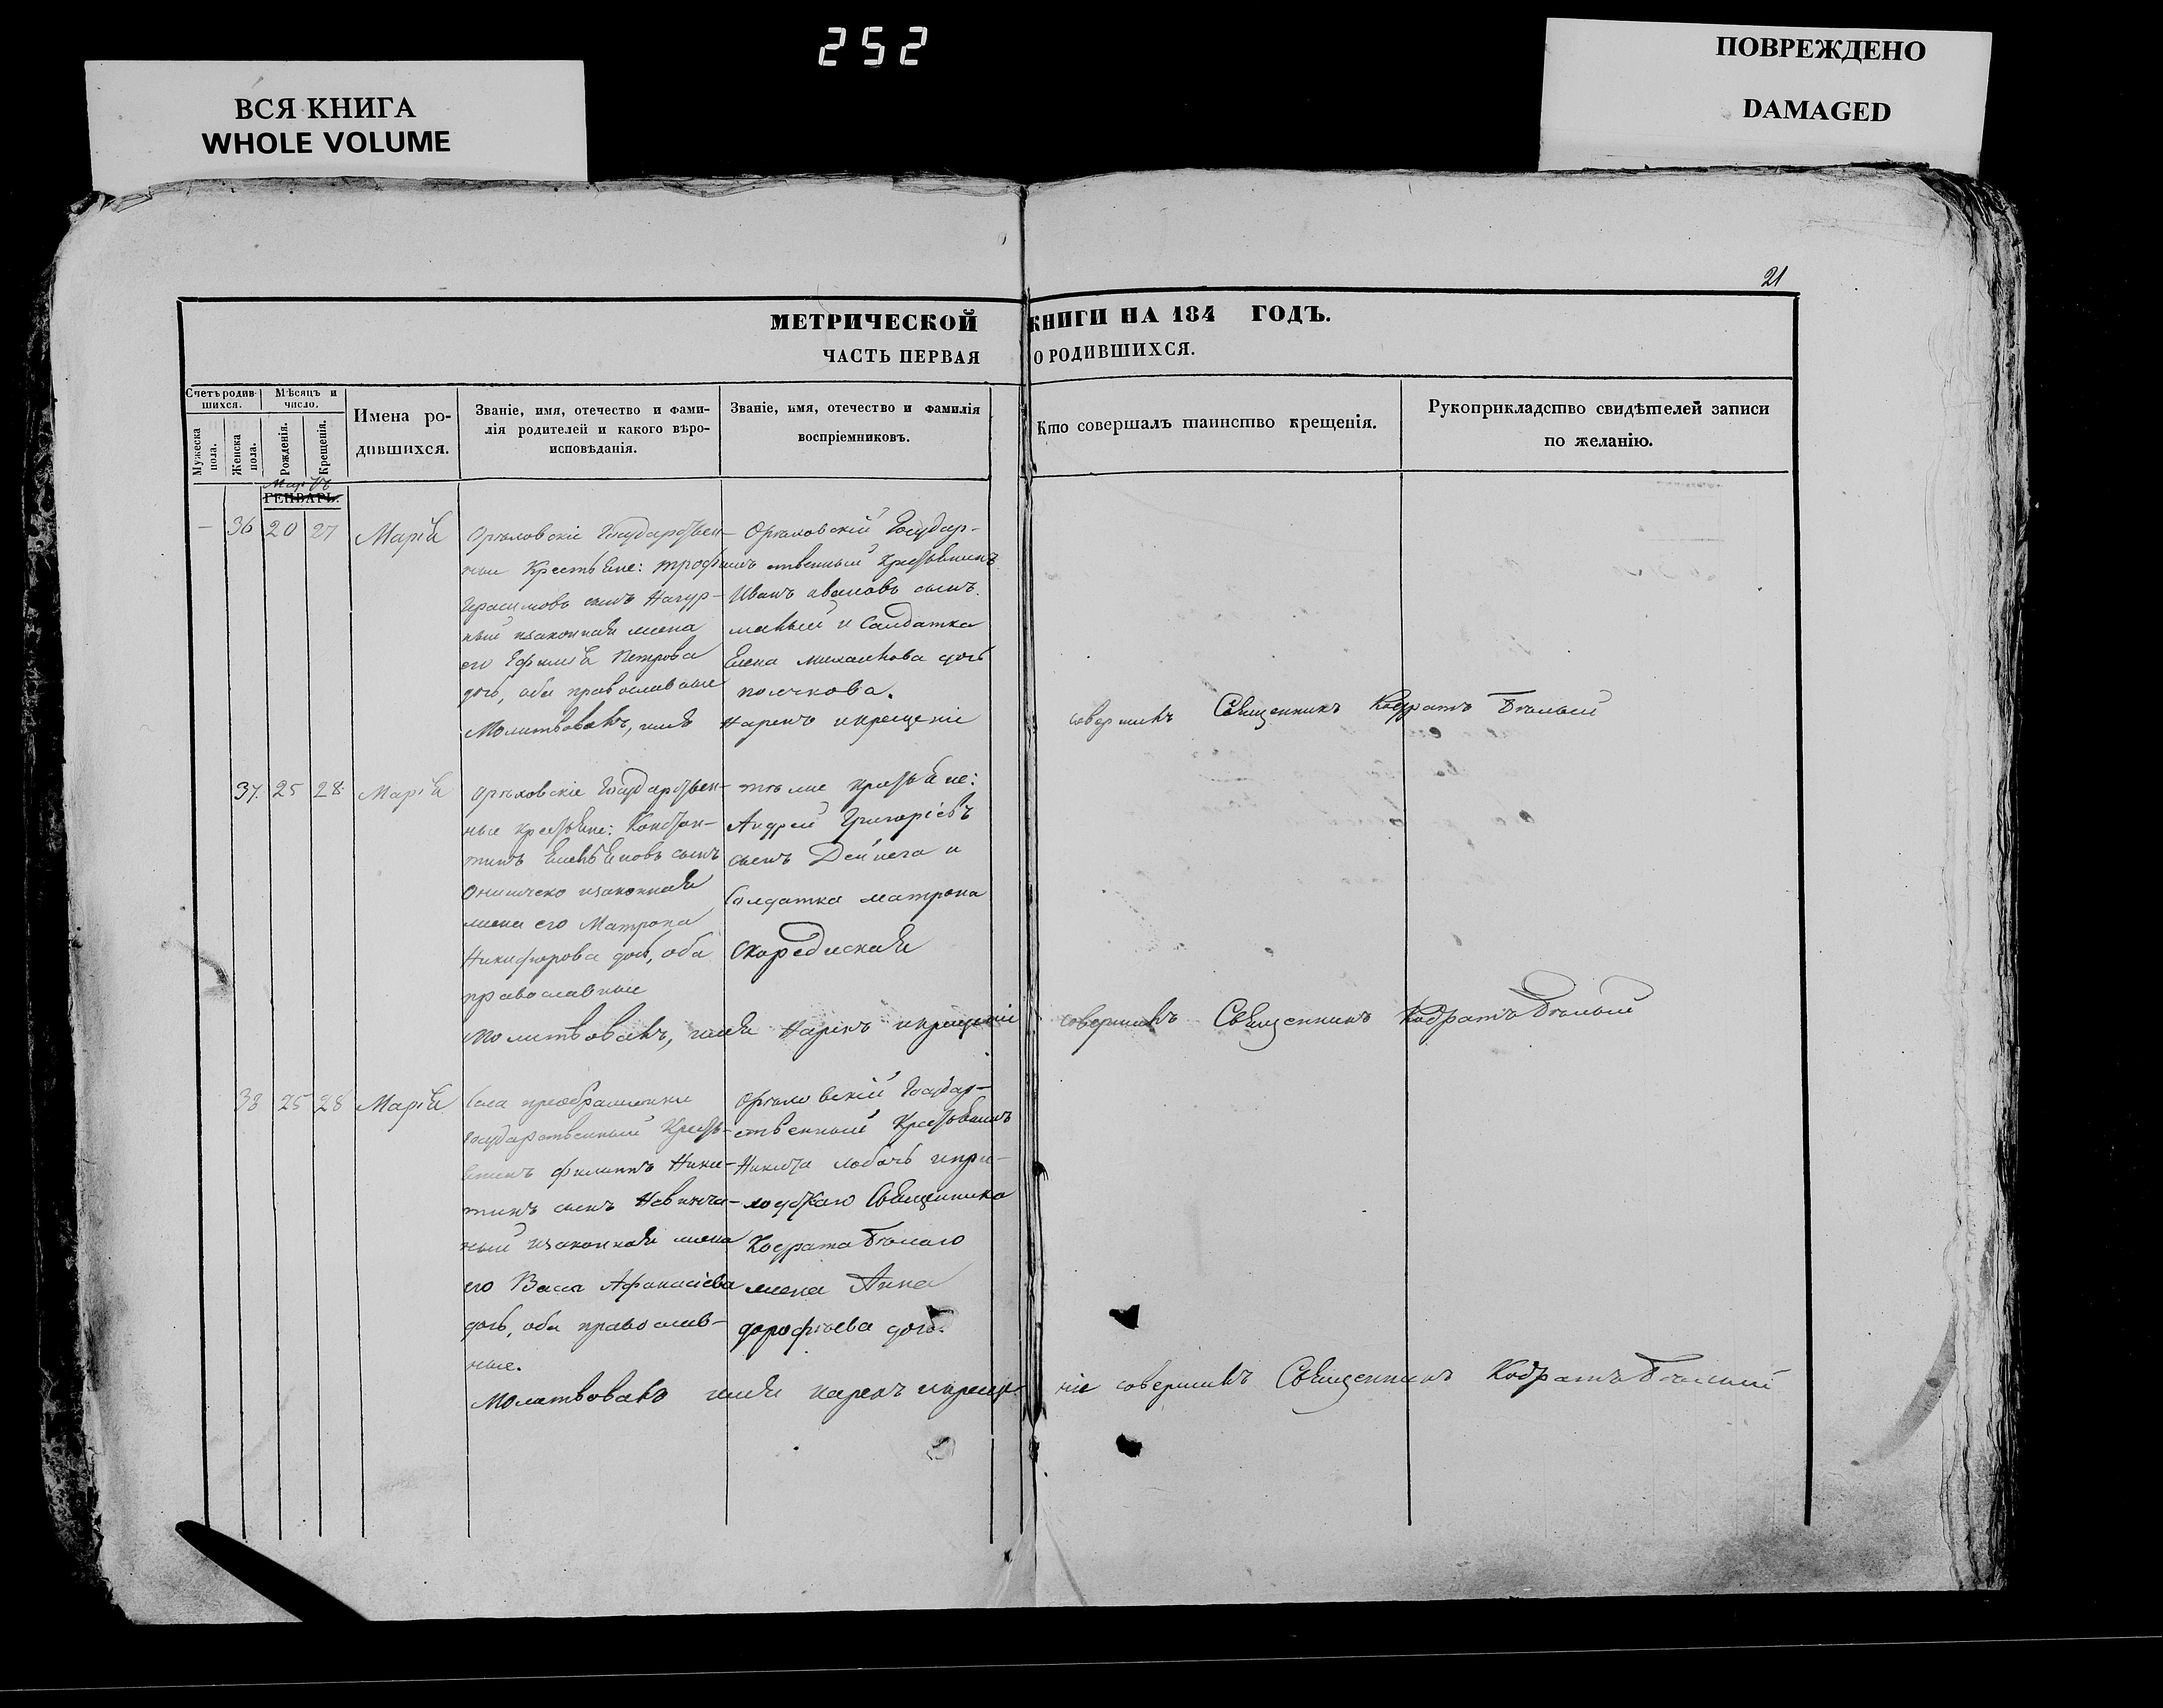 252
ВСЯ КНИГА
WHOLE VOLUME
ПОВРЕЖДЕНО
DAMAGED
21
МЕТРИЧЕСКОЙ КНИГИ НА 184 ГОДЪ.
ЧАСТЬ ПЕРВАЯ О РОДИВШИХСЯ.
Счетъ родив-
шихся.
Мужеска пола.
Женска пола.
Мѣсяцъ и
число.
Рожденія.
Крещенія.
Имена ро-
дившихся.
Званіе, имя, отечество и фами-
лія родителей и какого вѣро-
исповѣданія.
Званіе, имя, отечество и фамилія
воспріемниковъ.
Кто совершалъ таинство крещенія.
Рукоприкладство свидѣтелей записи
по желанію.
Мартъ
ГЕНВАРЬ.
— 36 20 27 Марія
Орѣховскіе Государствен-
ные Крестьяне: Трофимъ
Герасимовъ сынъ
изаконная жена
его Петрова
дочь, оба православные
Орѣховскій Государ-
ственный Крестьянинъ
Иванъ Ивановъ сынъ
и Солдатка
Елена Михайлова дочь
Молитвовалъ, имя нарекъ икрещеніе совершилъ Священникъ Кодратъ Бѣлый
37. 25 28 Марія
Орѣховскіе Государствен-
ные крестьяне: Констан-
тинъ сынъ
изаконная
жена его Матрона
Никифорова дочь, оба
православные
тѣже крестьяне:
Андрей Григоріевъ
сынъ Дейнега и
Солдатка Матрона
Молитвовалъ, имя нарекъ икрещеніе совершилъ Священникъ Кодратъ Бѣлый
38 25 28 Марія
Села Преображенки
Государственный Кресть-
янинъ Филиппъ Ники-
тинъ сынъ
изаконная жена
его Васса Афанасіева
дочь, оба православ-
ные.
Орѣховскій Государ-
ственный Крестьянинъ
Никита Лобачь
Священника
Кодрата Бѣлаго
жена Анна
Дорофѣева дочь.
Молитвовалъ имя нарекъ икреще- ніе совершилъ Священникъ Кодратъ Бѣлый